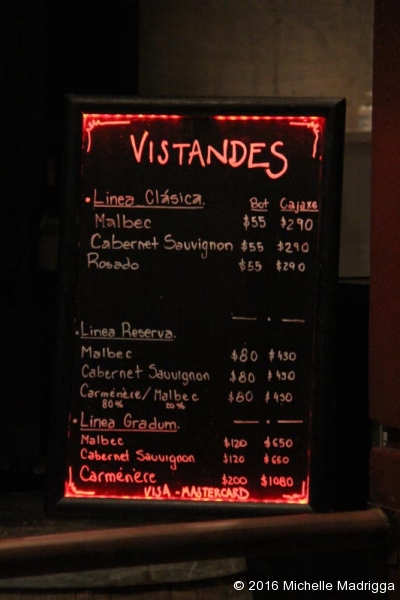 VISTANDES
Linea Clásica. Bot Cajax6
Malbec $55 $290
Cabernet Sauvignon $55 $290
Rosado $55 $290
Linea Reserva.
Malbec $80 $430
Cabernet Sauvignon $80 $430
Carménère/Malbec $80 $430
80% 20%
Linea Gradum.
Malbec $120 $650
Cabernet Sauvignon $120 $650
Carménère $200 $1080
VISA - MASTERCARD
© 2016 Michelle Madrigga